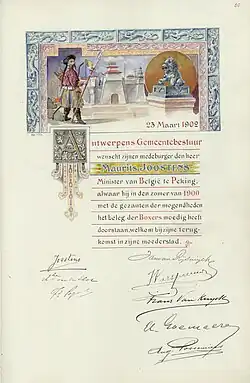 23 Maart 1902
Antwerpens Gemeentebestuur
wenscht zijnen medeburger den heer
Maurits JOOSTENS
Minister van België te Peking,
alwaar hij in den zomer van 1900
met de gezanten der mogendheden
het beleg der Boxers moedig heeft
doorstaan, welkom bij zijne terug-
komst in zijne moederstad.
Joostens
Frans Van Kuyck